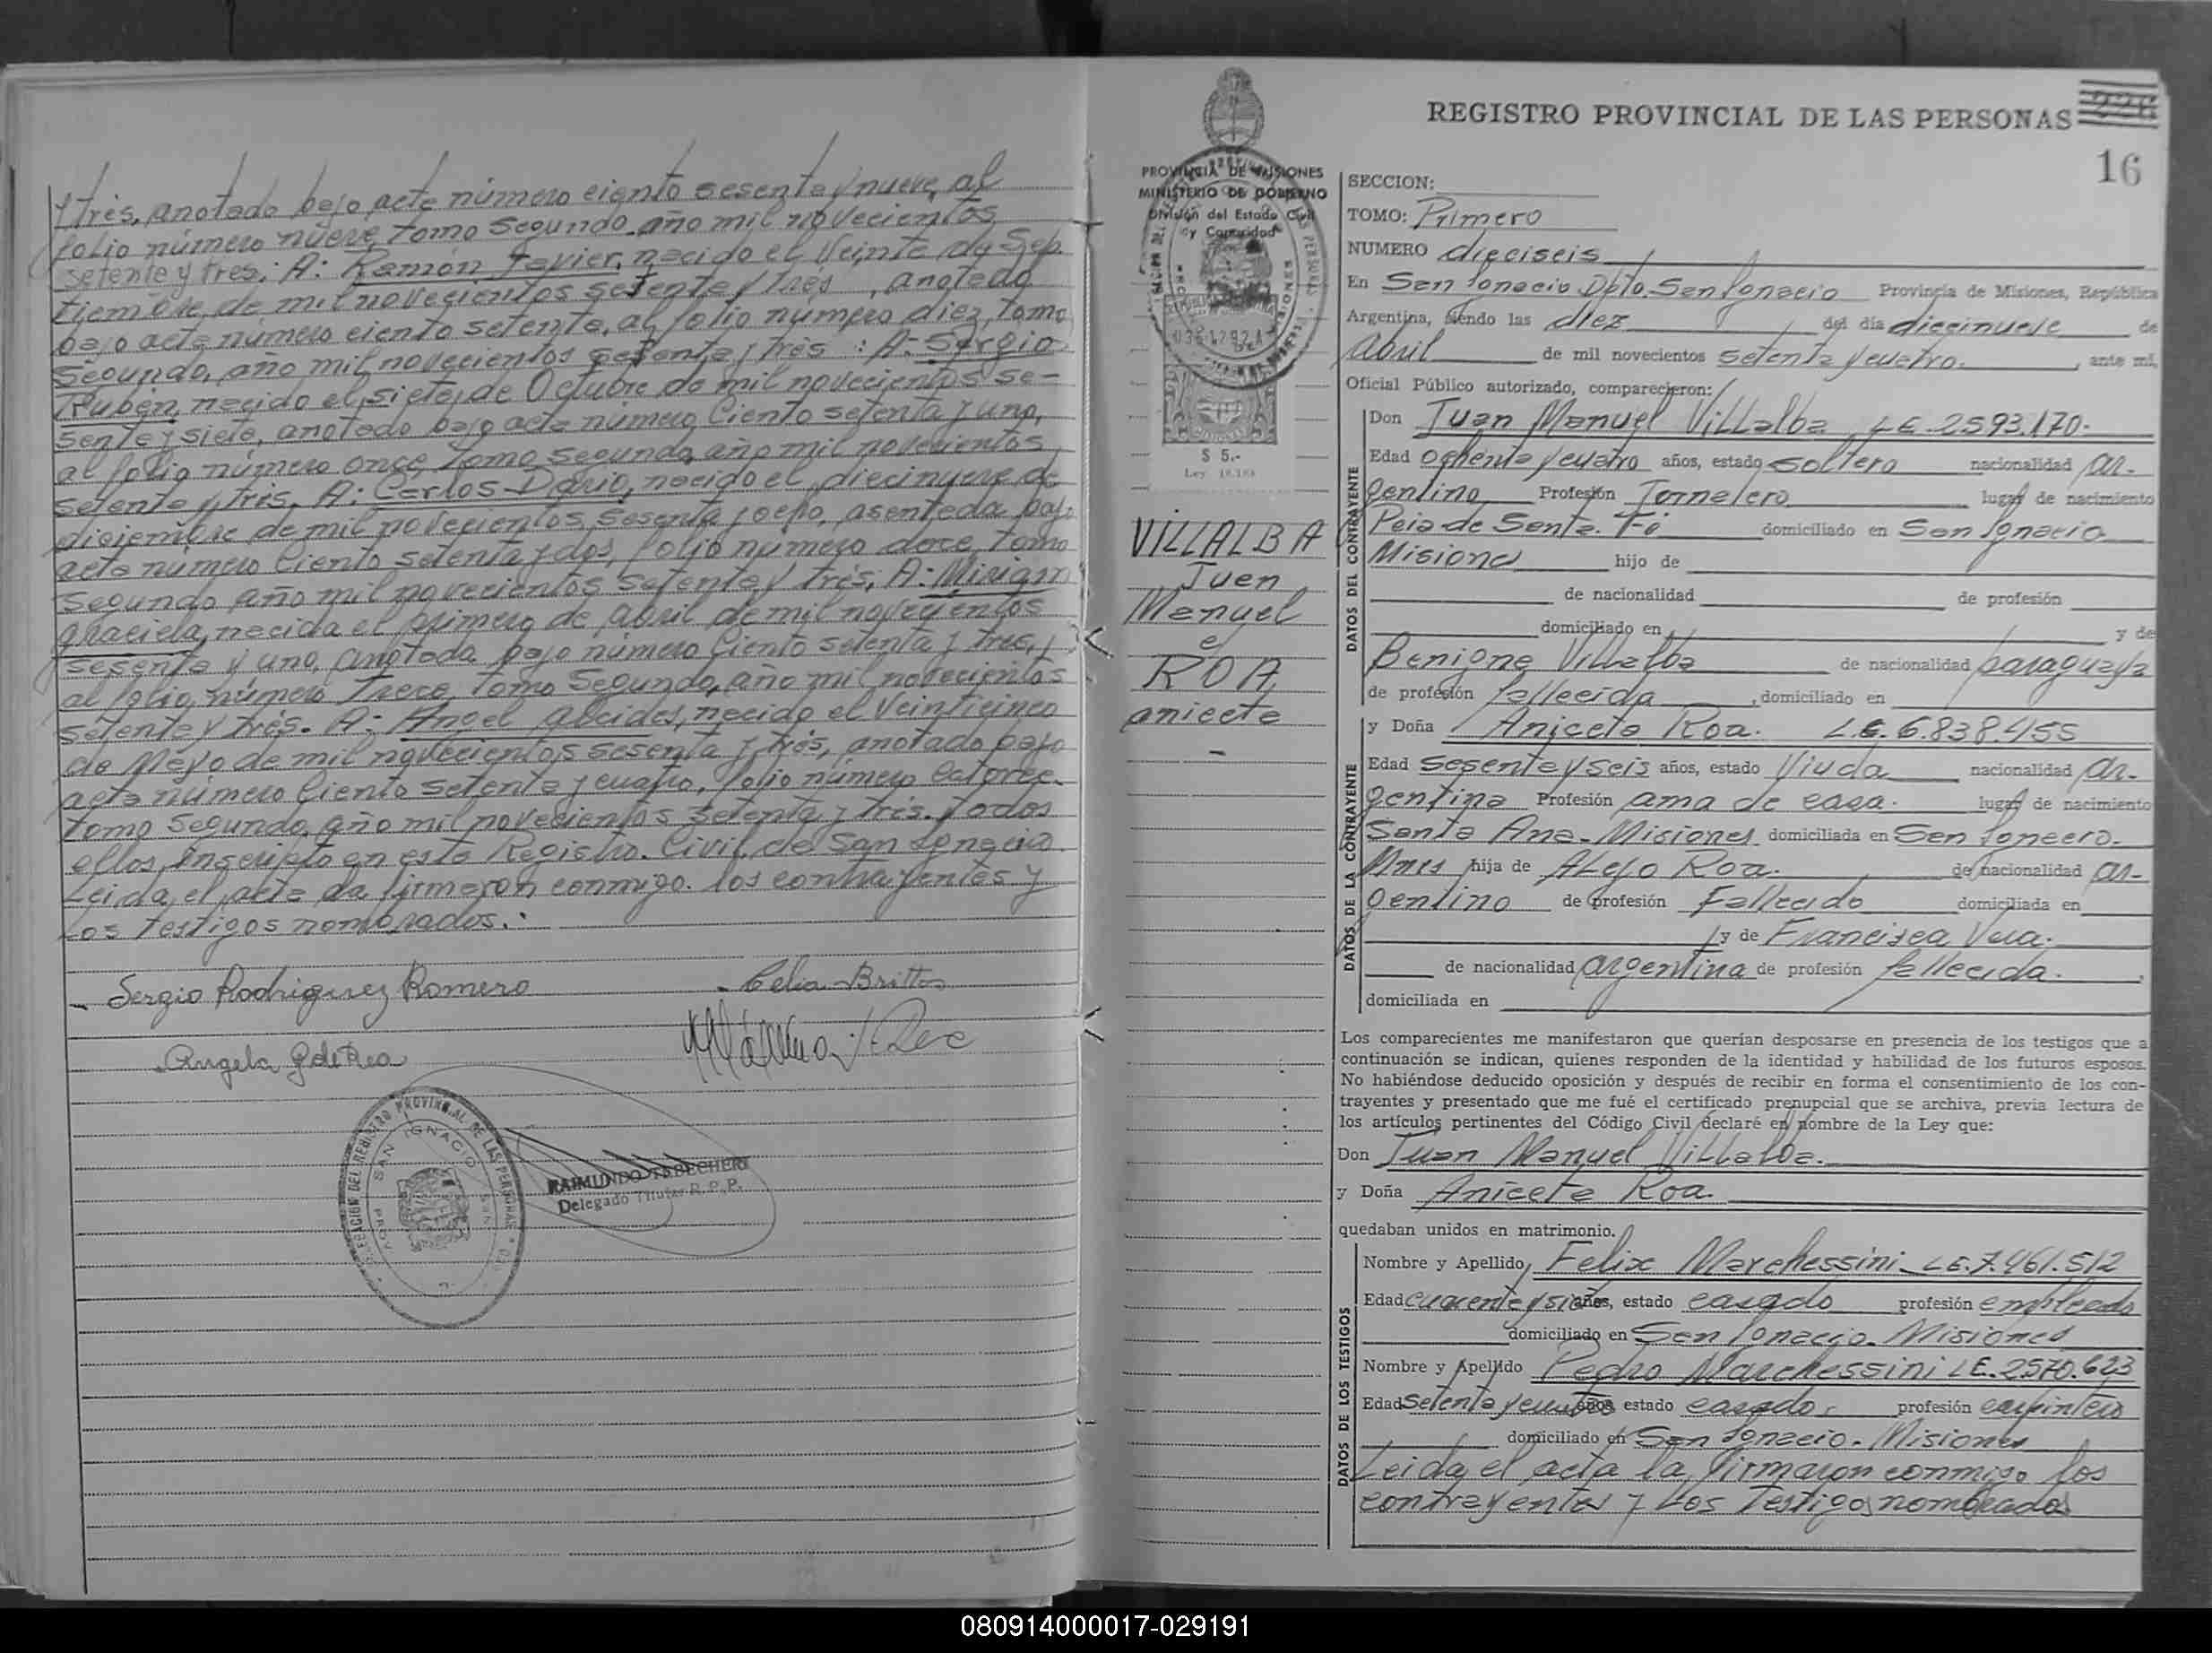 y tres, anotado bajo acta número ciento sesenta y nueve, al
folio número nueve, tomo segundo año mil novecientos
setenta y tres; A: Ramón Javier, nacido el veinte de Sep-
tiembre de mil novecientos setenta y tres, anotado
bajo acta número ciento setenta, al folio número diez, tomo
segundo, año mil novecientos setenta y tres: A: Sergio
Ruben, nacido el siete de Octubre de mil novecientos se-
sente y siete, anotado bajo acta número Ciento setenta y uno,
al folio número once, tomo segundo, año mil novecientos
setenta y tres, A: Carlos Dario, nacido el diecinueve de
diciembre de mil novecientos sesenta y ocho, asentada bajo
acta número Ciento setenta y dos, folio número doce, tomo
segundo año mil novecientos setenta y tres, A: Mirian
Graciela, nacida el primero de abril de mil novecientos
sesenta y uno, anotada bajo número Ciento setenta y tres,
al folio número trece, tomo Segundo, año mil novecientos
setenta y tres. A: Angel Alcides, nacido el Veinticinco
de Mayo de mil novecientos sesenta y tres, anotado bajo
acta número Ciento setenta y cuatro, folio número catorce.
tomo Segundo, año mil novecientos setenta y tres. Todos
ellos inscripto en este Registro Civil de San Ignacio.
Leida el acta la firmaron conmigo los contrayentes y
los testigos nombrados.:
Sergio Rodriguez Romero
Celia Britto
Angela
DELEGACION DEL REGISTRO PROVINCIAL DE LAS PERSONAS
SAN IGNACIO
RAIMUNDO TEBECHERI
Delegado Titular R.P.P.
REGISTRO PROVINCIAL DE LAS PERSONAS 226
16
PROVINCIA DE MISIONES
MINISTERIO DE GOBIERNO
División del Estado Civil
y Capacidad
$ 5.-
VILLALBA
Juan
Manuel
e
ROA
aniceta
-
SECCION:
TOMO: Primero
NUMERO dieciseis
En San Ignacio Dpto. San Ignacio Provincia de Misiones, República
Argentina, siendo las diez del día diecinueve de
Abril de mil novecientos setenta y cuatro. , ante mí,
Oficial Público autorizado, comparecieron:
DATOS DEL CONTRAYENTE
Don Juan Manuel Villalba LE 2593.170.
Edad ochenta y cuatro años, estado soltero nacionalidad ar-
gentino Profesión Jornalero lugar de nacimiento
Pcia de Santa. Fé domiciliado en San Ignacio
Misiones hijo de
de nacionalidad de profesión
domiciliado en y de
Benigna Villalba de nacionalidad paraguaya
de profesión fallecida , domiciliado en
DATOS DE LA CONTRAYENTE
y Doña Aniceta Roa. L.E. 6.838.455
Edad sesenta y seis años, estado Viuda nacionalidad ar-
gentina Profesión ama de casa. lugar de nacimiento
Santa Ana-Misiones domiciliada en San Ignacio.
Mnes hija de Alejo Roa. de nacionalidad ar-
gentino de profesión Fallecido domiciliada en
y de Francisca Vera.
de nacionalidad argentina de profesión fallecida.
domiciliada en
Los comparecientes me manifestaron que querían desposarse en presencia de los testigos que a
continuación se indican, quienes responden de la identidad y habilidad de los futuros esposos.
No habiéndose deducido oposición y después de recibir en forma el consentimiento de los con-
trayentes y presentado que me fué el certificado prenupcial que se archiva, previa lectura de
los artículos pertinentes del Código Civil declaré en nombre de la Ley que:
Don Juan Manuel Villalba.
y Doña Aniceta Roa.
quedaban unidos en matrimonio.
DATOS DE LOS TESTIGOS
Nombre y Apellido Felix Marchessini LE.7.461.512
Edad cuarenta y siete años, estado casado profesión empleado
domiciliado en San Ignacio. Misiones
Nombre y Apellido Pedro Marchessini LE.2570.623
Edad Setenta y cuatro años estado casado, profesión carpintero
domiciliado en San Ignacio. Misiones
Leida el acta la firmaron conmigo los
contrayentes y los testigos nombrados
080914000017-029191